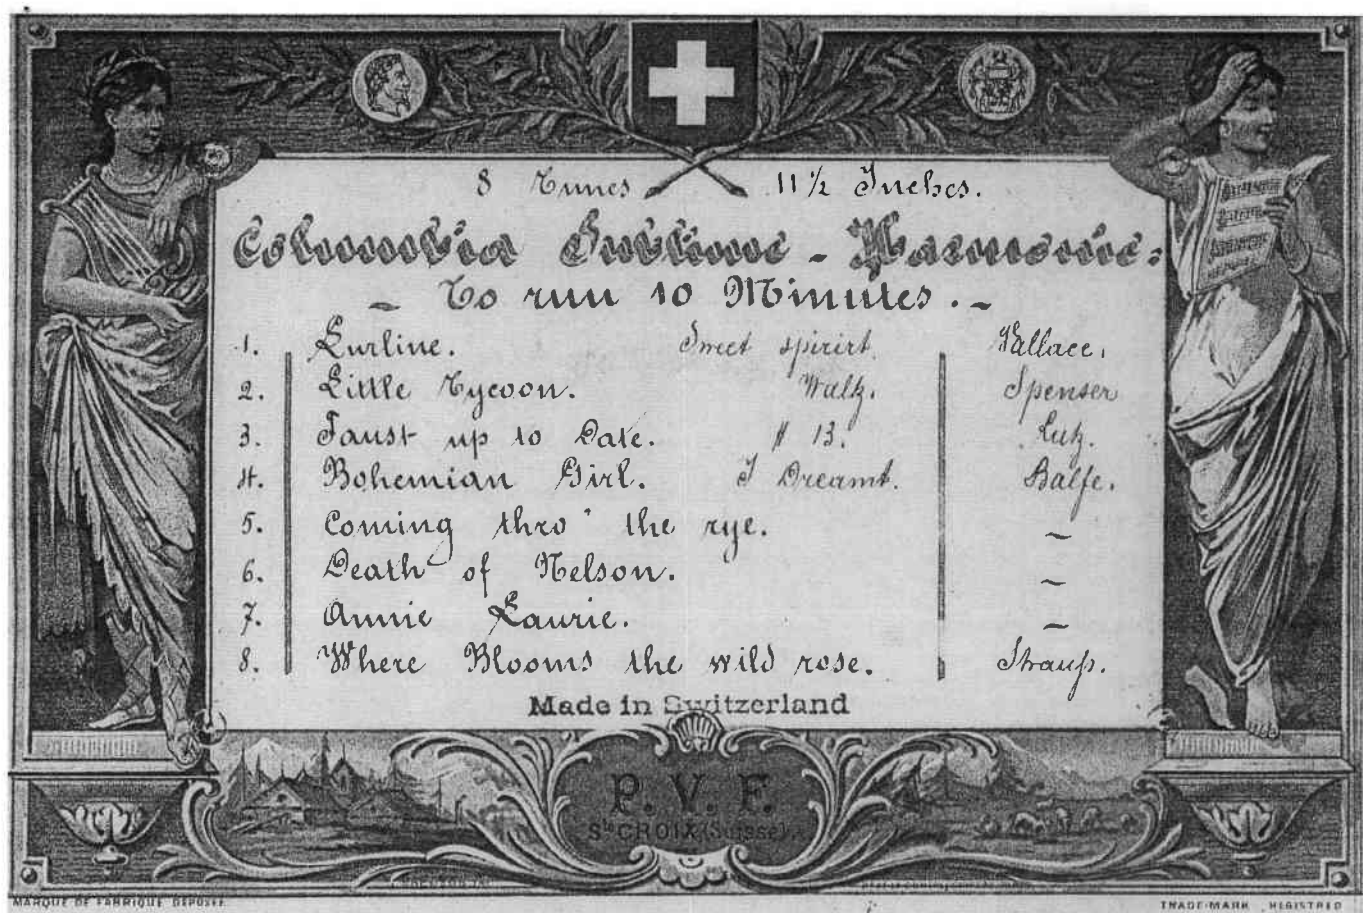 8 Tunes 11 1/2 Inches.
Columbia Sublime - Harmonie:
- To run 10 Minutes. -
1. Lurline. Sweet spirirt. Wallace.
2. Little Tycoon. Waltz. Spenser
3. Faust up to Date. # 13. Lutz.
4. Bohemian Girl. I Dreamt. Balfe.
5. Coming thro' the rye. ~
6. Death of Nelson. ~
7. Annie Laurie. ~
8. Where Blooms the wild rose. Strauß.
Made in Switzerland
P. V. F.
Ste CROIX (Suisse).
MARQUE DE FABRIQUE DÉPOSÉE
TRADE-MARK REGISTRED